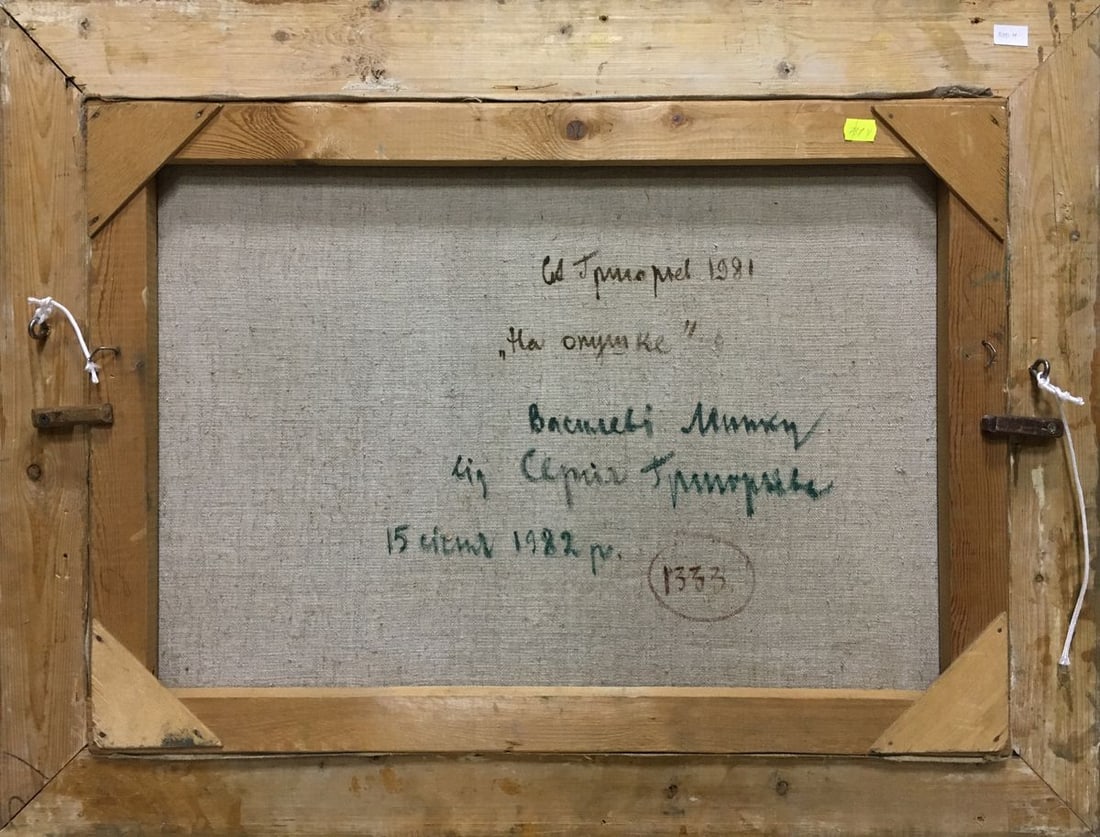 СА Григорьев 1981
„На опушке"
Василеві Минку
від Сергія Григорьєва
15 січня 1982 р.
1333